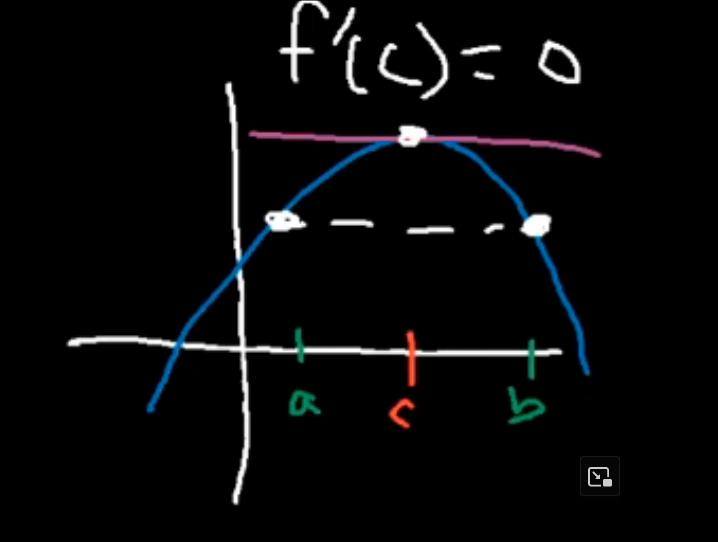 f'(c) = 0
a c b